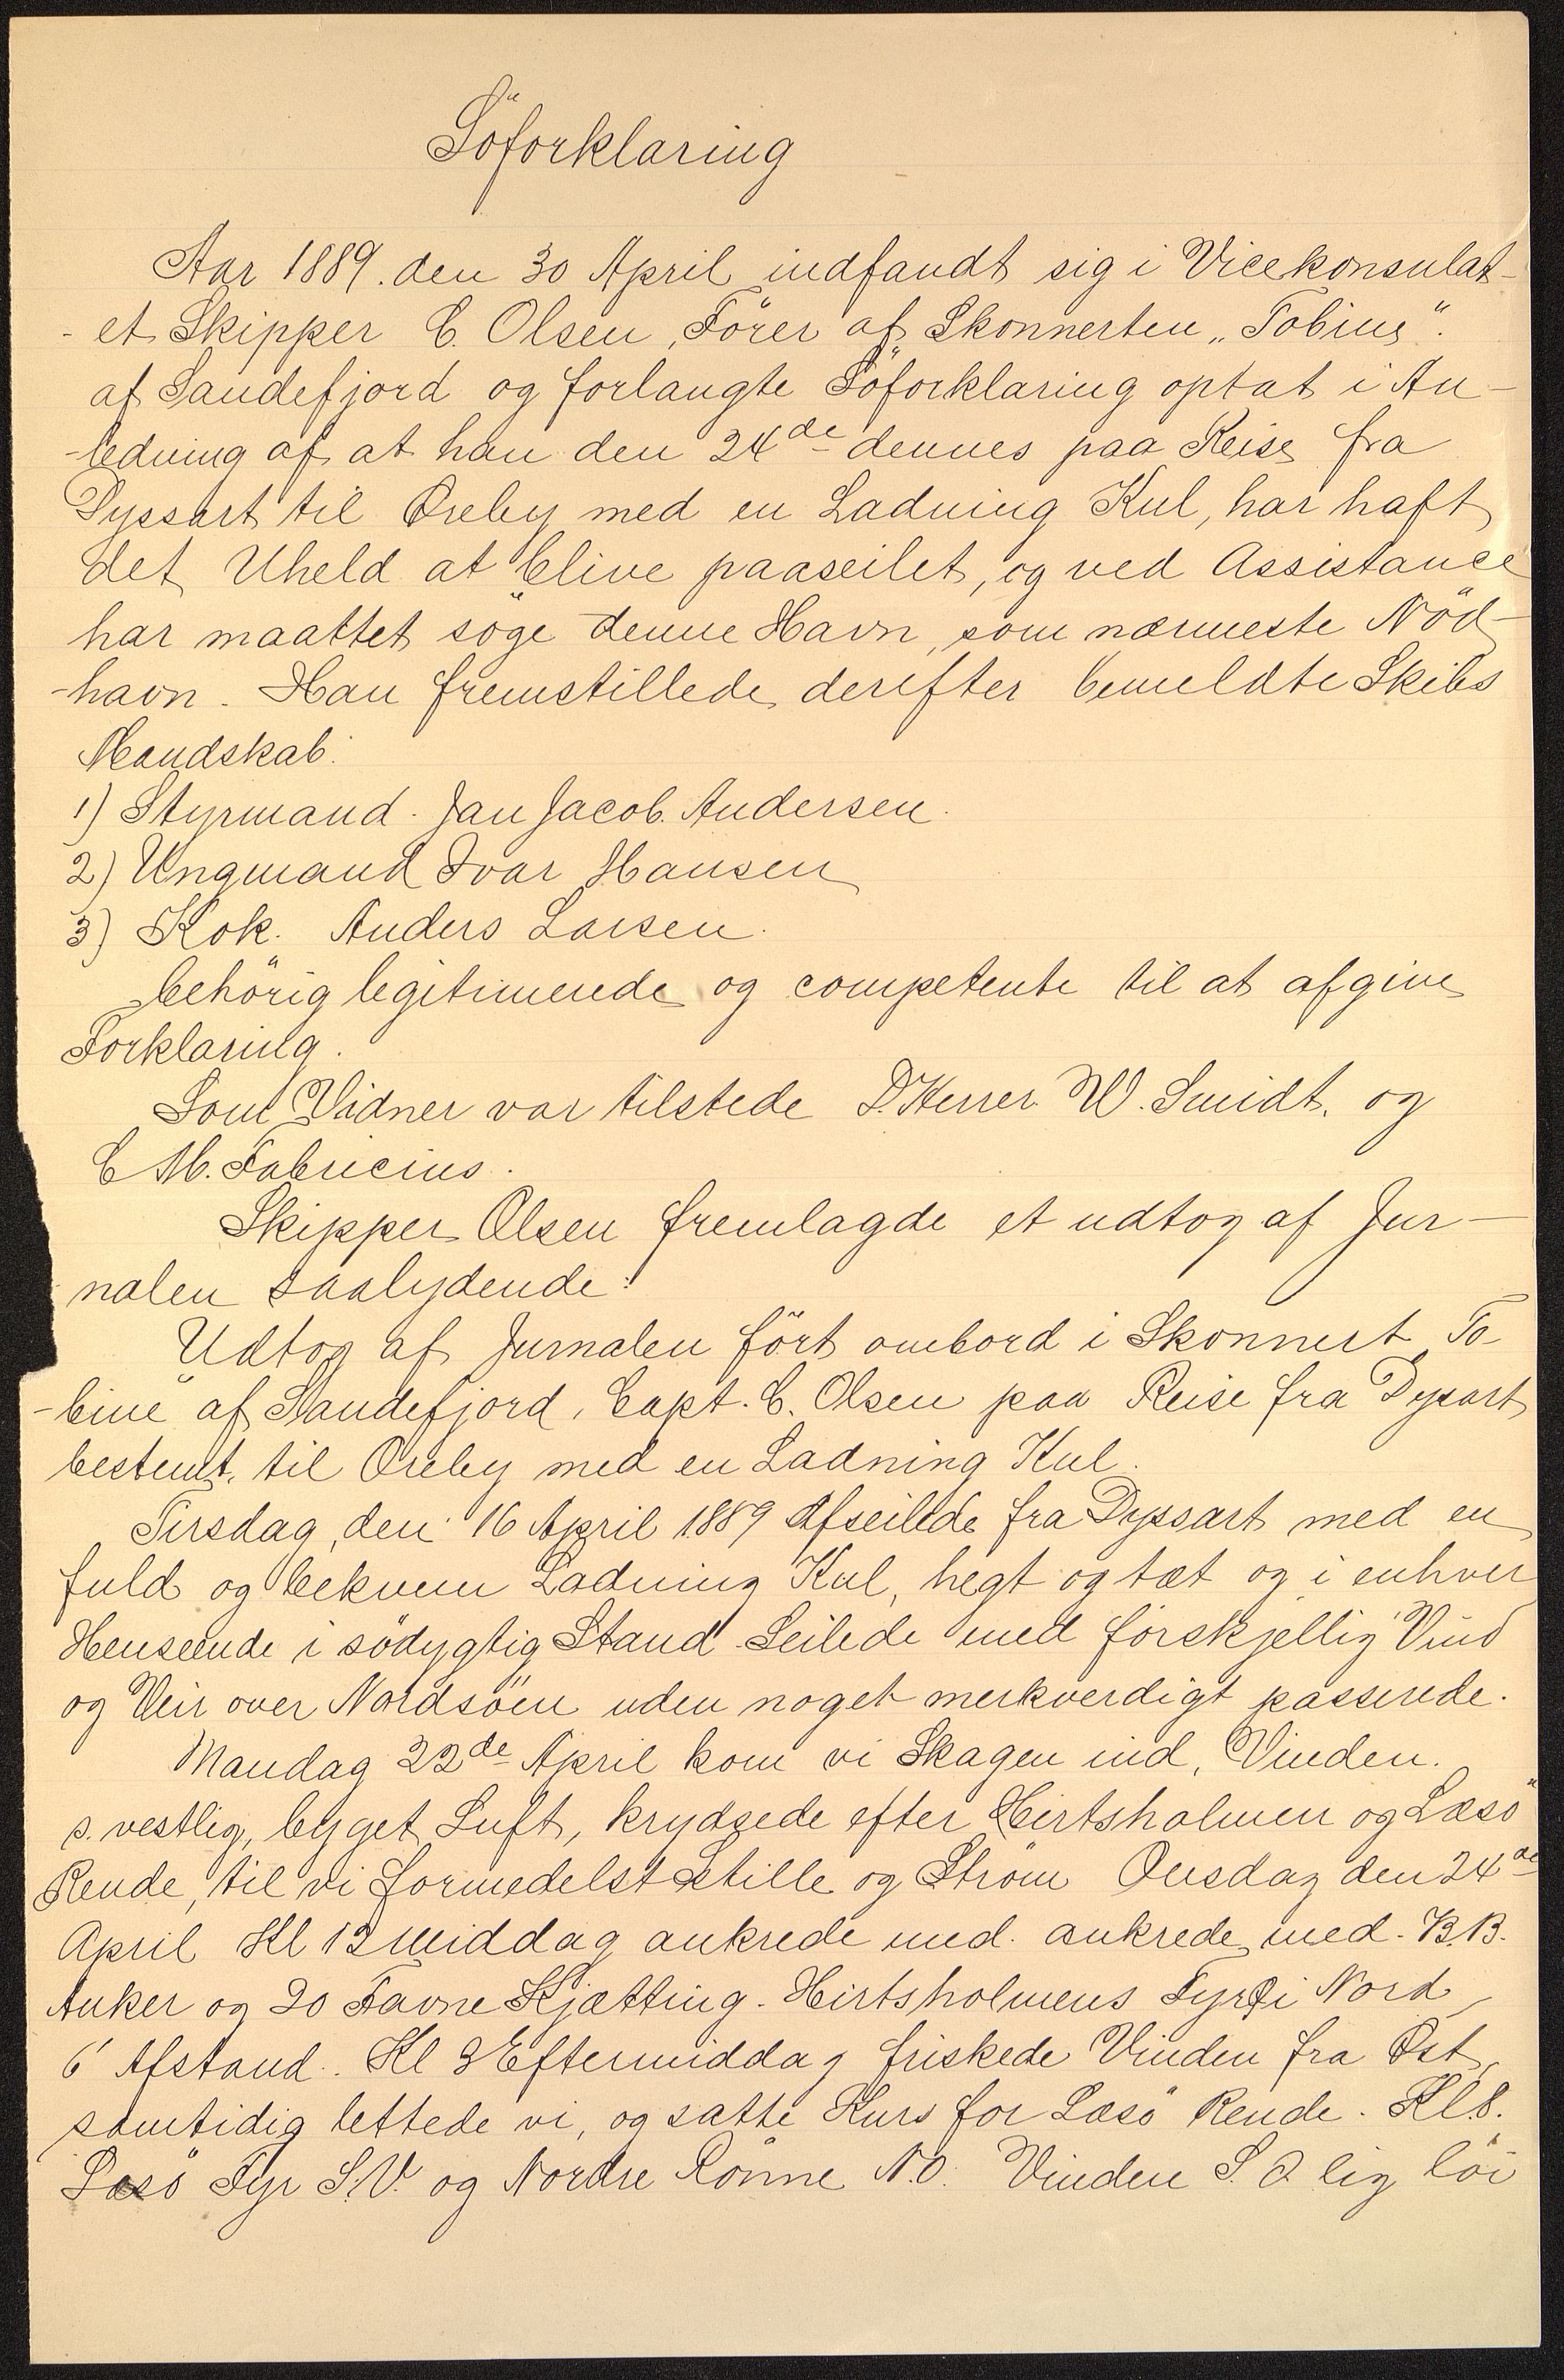 Söforklaring
Aar 1889. den 30 April indfandt sig i Vicekonsulat-
- et Skipper C. Olsen, Förer af Skonnerten „Tobine".
af Sandefjord og forlangte Söforklaring optat i An-
-ledning af at han den 24de dennes paa Reise fra
Dyssart til Oreby med en Ladning Kul, har haft
det Uheld at blive paaseilet, og ved Assistance
har maattet söge denne Havn, som nærmeste Nöd-
-havn. Han fremstillede derefter bemeldte Skibs
Mandskab:
1) Styrmand. Jan Jacob. Andersen.
2) Ungmand Ivar Hansen
3) Kok. Anders Larsen.
behörig legitimerede og competente til at afgive
Forklaring.
Som Vidner var tilstede D'Herrer W. Smidt. og
C M. Fabricius.
Skipper Olsen fremlagde et udtog af Jur-
nalen saalydende:
Udtog af Jurnalen fört ombord i Skonnert To-
-bine" af Sandefjord, Capt. C. Olsen paa Reise fra Dysart
bestemt. til Oreby med en Ladning Kul.
Tirsdag, den 16 April 1889 Afseilede fra Dyssart med en
fuld og bekvem Ladning Kul, hegt og tæt og i enhver
Henseende i södygtig Stand. Seilede med forskjellig Vind
og Veir over Nordsöen uden noget merkverdigt passerede.
Mandag 22de April kom vi Skagen ind, Vinden.
s. vestlig, byget Luft, krydsede efter Hirtsholmen og Læsö
Rende, til vi formedelst Stille og Ström Onsdag den 24de
April Kl 12 Middag ankrede med. ankrede med. B.B.
Anker og 20 Favne Kjætting. Hirtsholmens Fyr i Nord
6' Afstand. Kl 3 Eftermiddag friskede Vinden fra Øst,
samtidig lettede vi, og satte Kurs for Læsö Rende. Kl 8.
Læsö Fyr S.V. og Nordre Rönne N.O. Vinden S. O lig löi